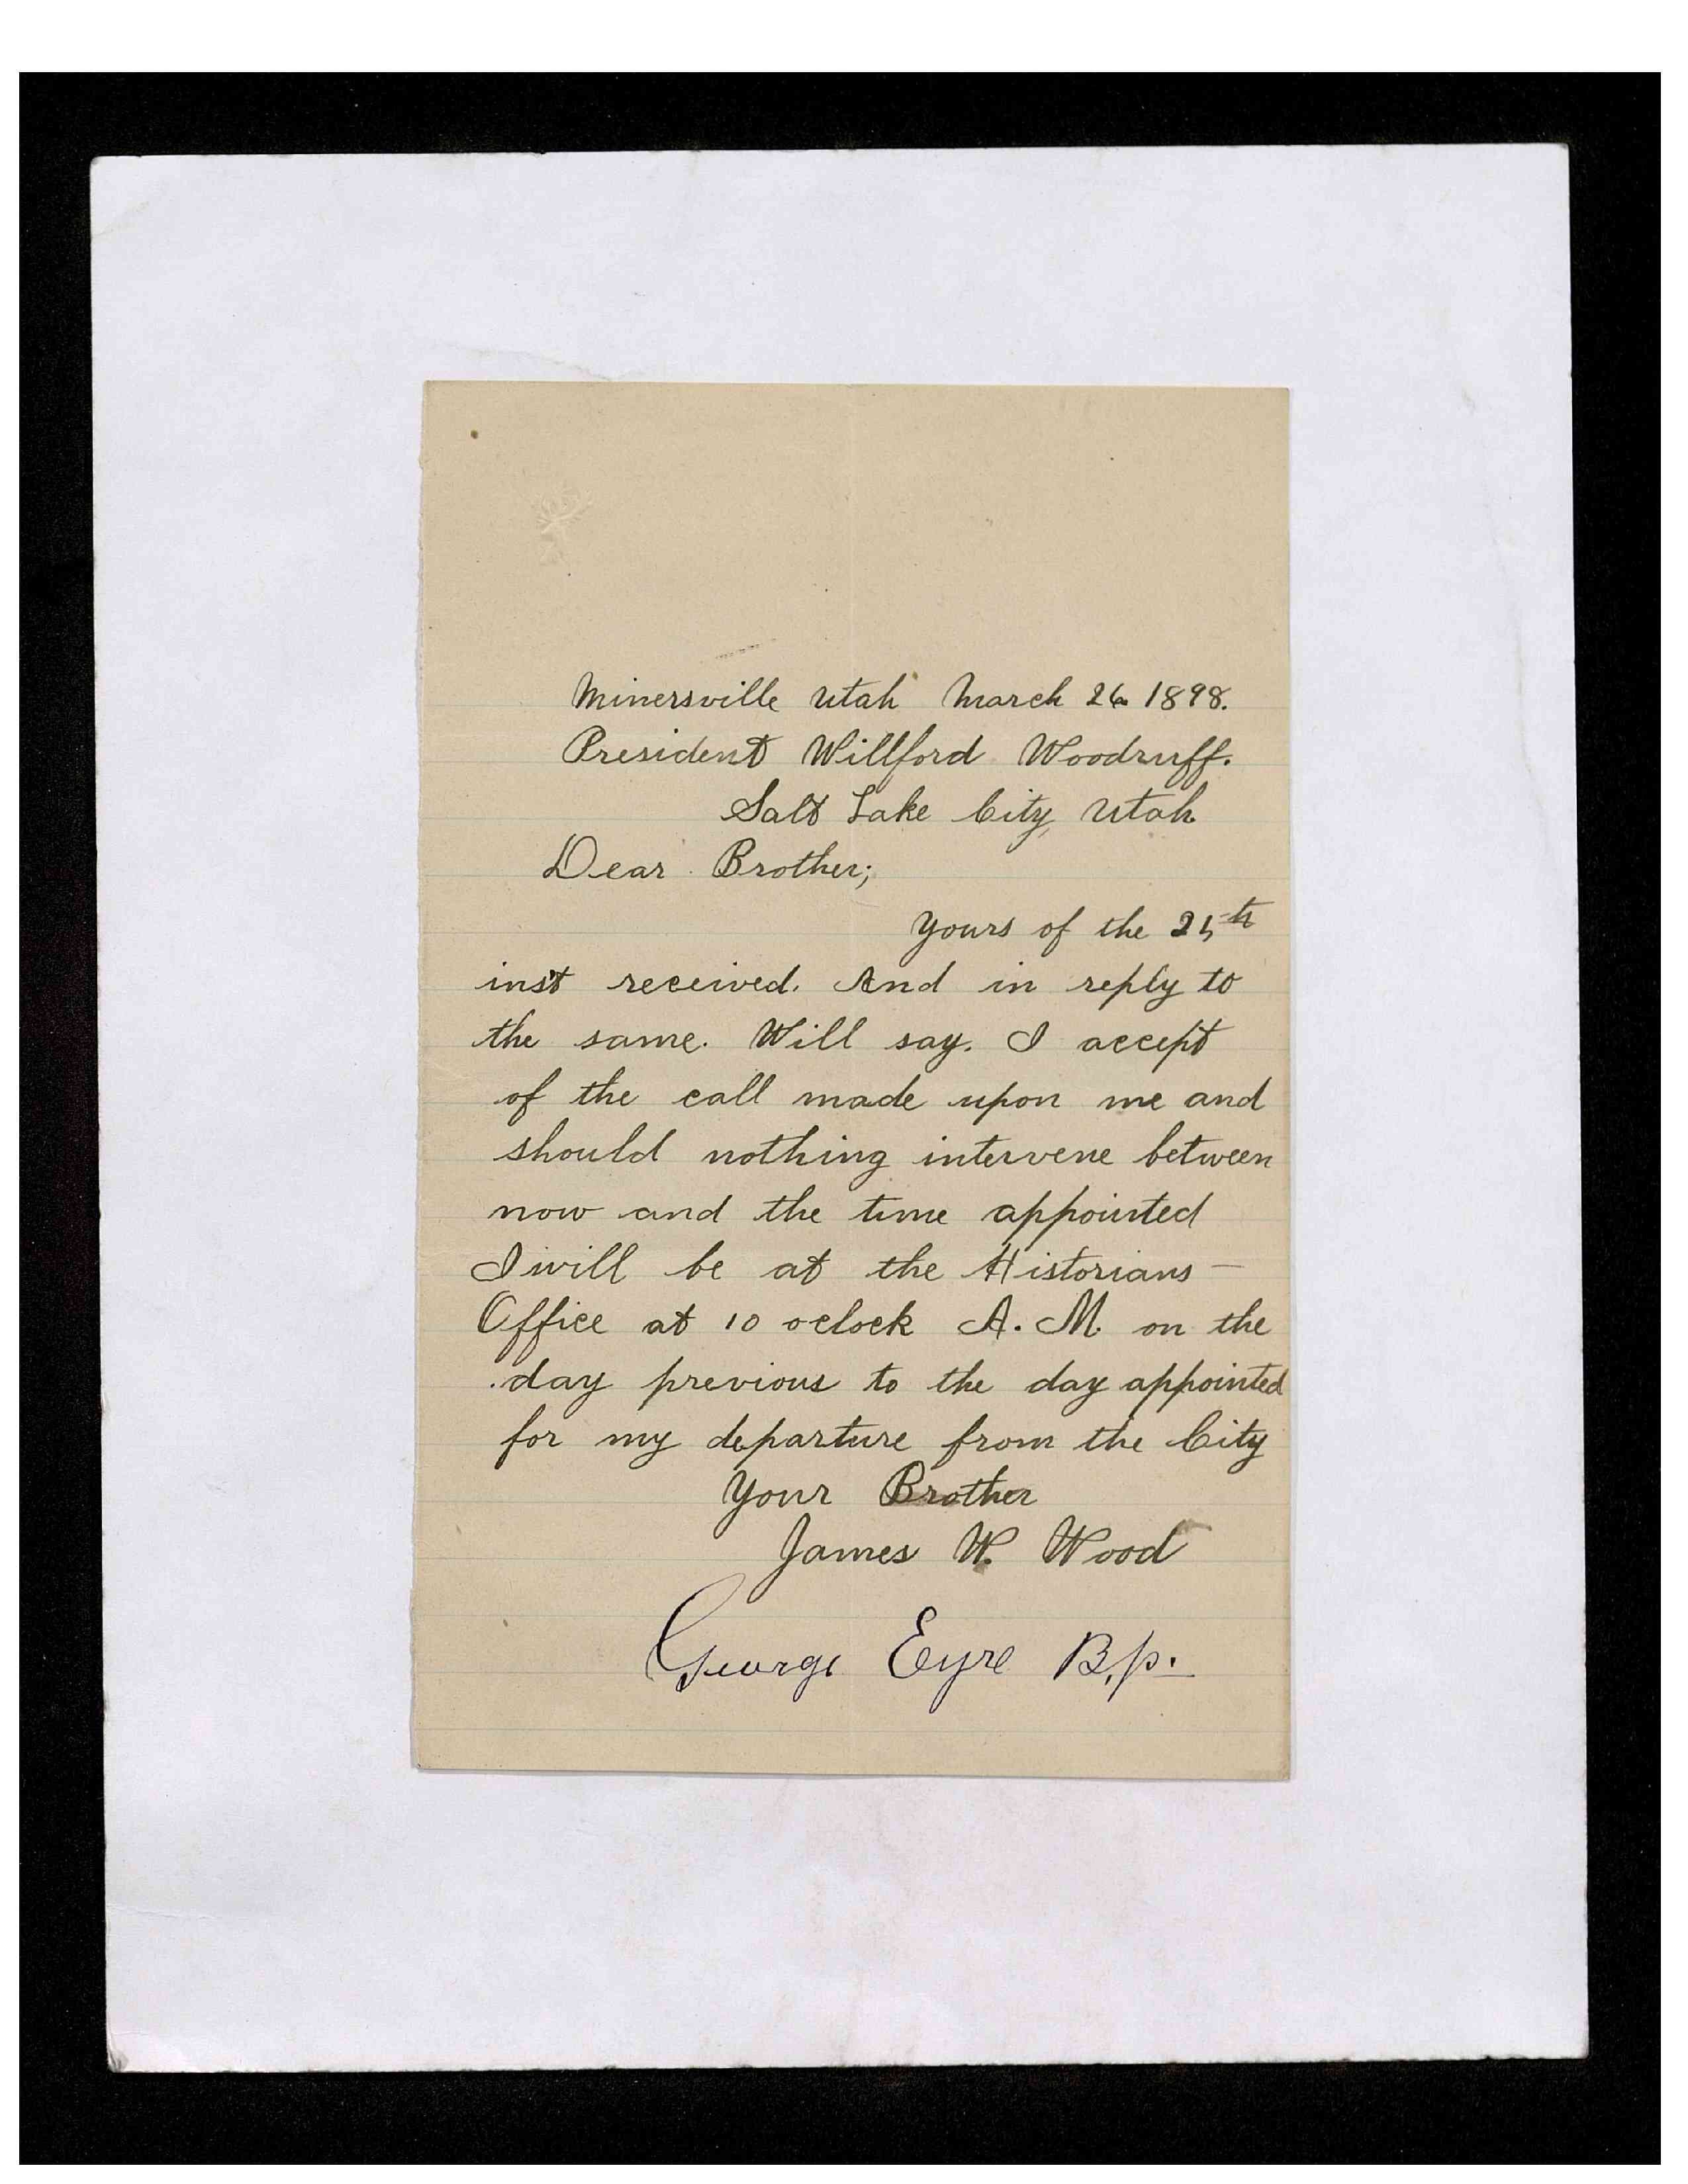 Minersville Utah March 26 1898.
President Willford Woodruff.
Salt Lake City, Utah
Dear Brother;
Yours of the 25th
inst received. And in reply to
the same. Will say. I accept
of the call made upon me and
should nothing intervene between
now and the time appointed
I will be at the Historians —
Office at 10 oclock A. M. on the
day previous to the day appointed
for my departure from the City
Your Brother
James W. Wood
George Eyre B.p.